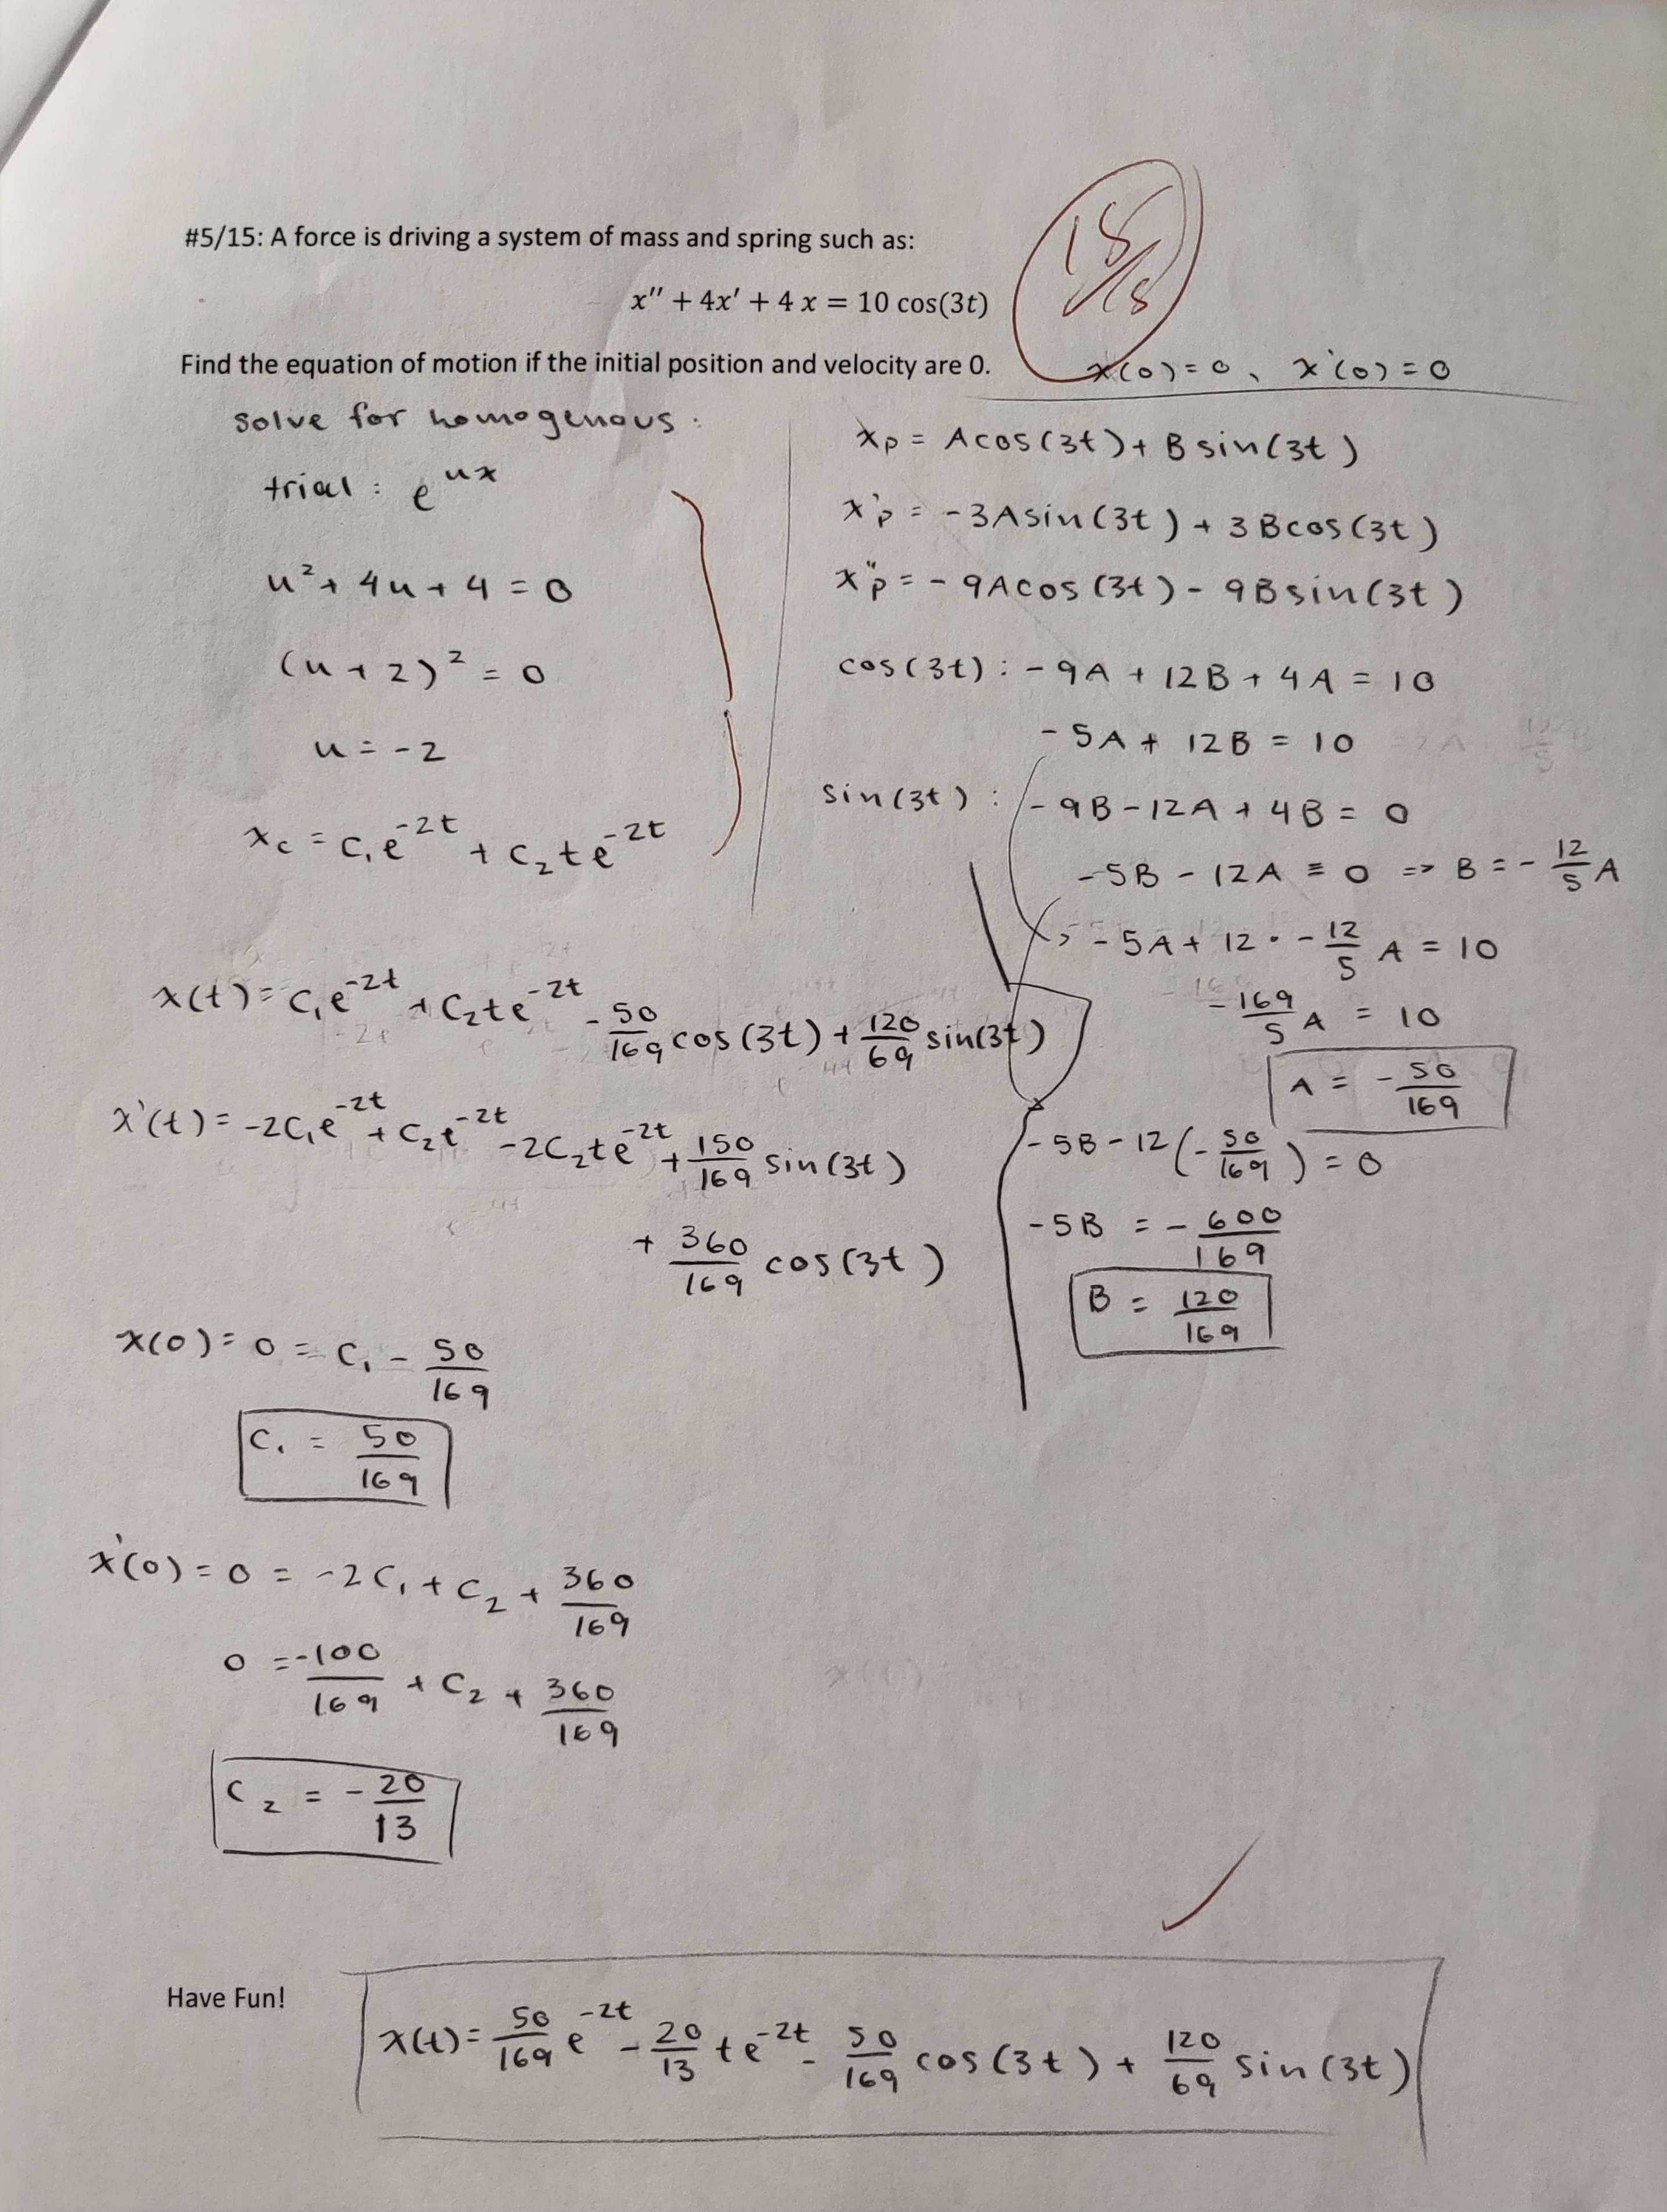 #5/15: A force is driving a system of mass and spring such as:
15/15
x'' + 4x' + 4 x = 10 cos(3t)
Find the equation of motion if the initial position and velocity are 0.
x(0) = 0, x'(0) = 0
solve for homogenous:
trial: e^{ux}
u² + 4u + 4 = 0
(u + 2)² = 0
u = -2
x_c = c₁e^{-2t} + c₂te^{-2t}
x_p = Acos(3t) + Bsin(3t)
x'_p = -3Asin(3t) + 3Bcos(3t)
x''_p = -9Acos(3t) - 9Bsin(3t)
cos(3t): -9A + 12B + 4A = 10
-5A + 12B = 10
sin(3t): -9B - 12A + 4B = 0
-5B - 12A = 0 => B = -12/5 A
-5A + 12 · -12/5 A = 10
-169/5 A = 10
A = -50/169
-5B - 12(-50/169) = 0
-5B = -600/169
B = 120/169
x(t) = c₁e^{-2t} + c₂te^{-2t} - 50/169 cos(3t) + 120/69 sin(3t)
x'(t) = -2c₁e^{-2t} + c₂e^{-2t} - 2c₂te^{-2t} + 150/169 sin(3t)
+ 360/169 cos(3t)
x(0) = 0 = c₁ - 50/169
c₁ = 50/169
x'(0) = 0 = -2c₁ + c₂ + 360/169
0 = -100/169 + c₂ + 360/169
c₂ = -20/13
Have Fun!
x(t) = 50/169 e^{-2t} - 20/13 te^{-2t} - 50/169 cos(3t) + 120/69 sin(3t)